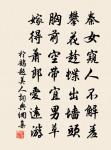 秦女窺人不解羞
攀花趁蝶出牆頭
胸前空帶宜男草
嫁得蕭郎愛遠遊
於鵠題美人詞典網集